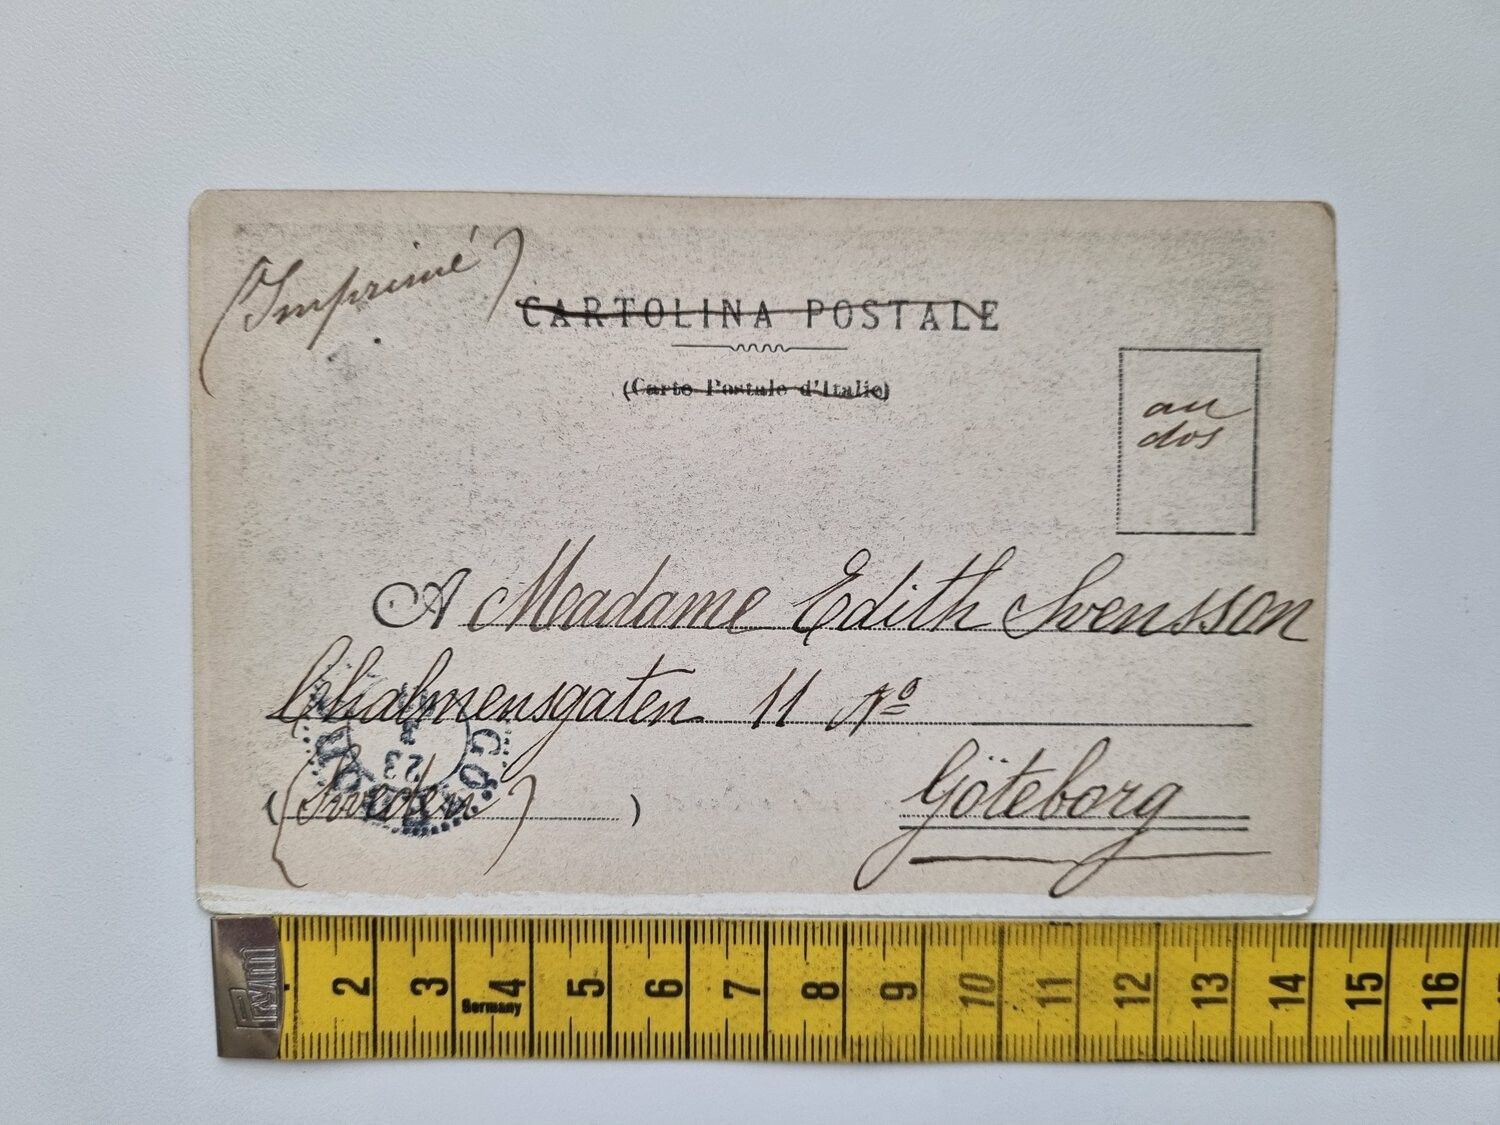 (Imprimé)
CARTOLINA POSTALE
(Carte Postale d'Italie)
au
dos
A Madame Edith Svensson
Chalmersgatan 11 Nº
(Sweden)
Göteborg
23
Prym
2 3 4 5 6 7 8 9 10 11 12 13 14 15 16
Germany